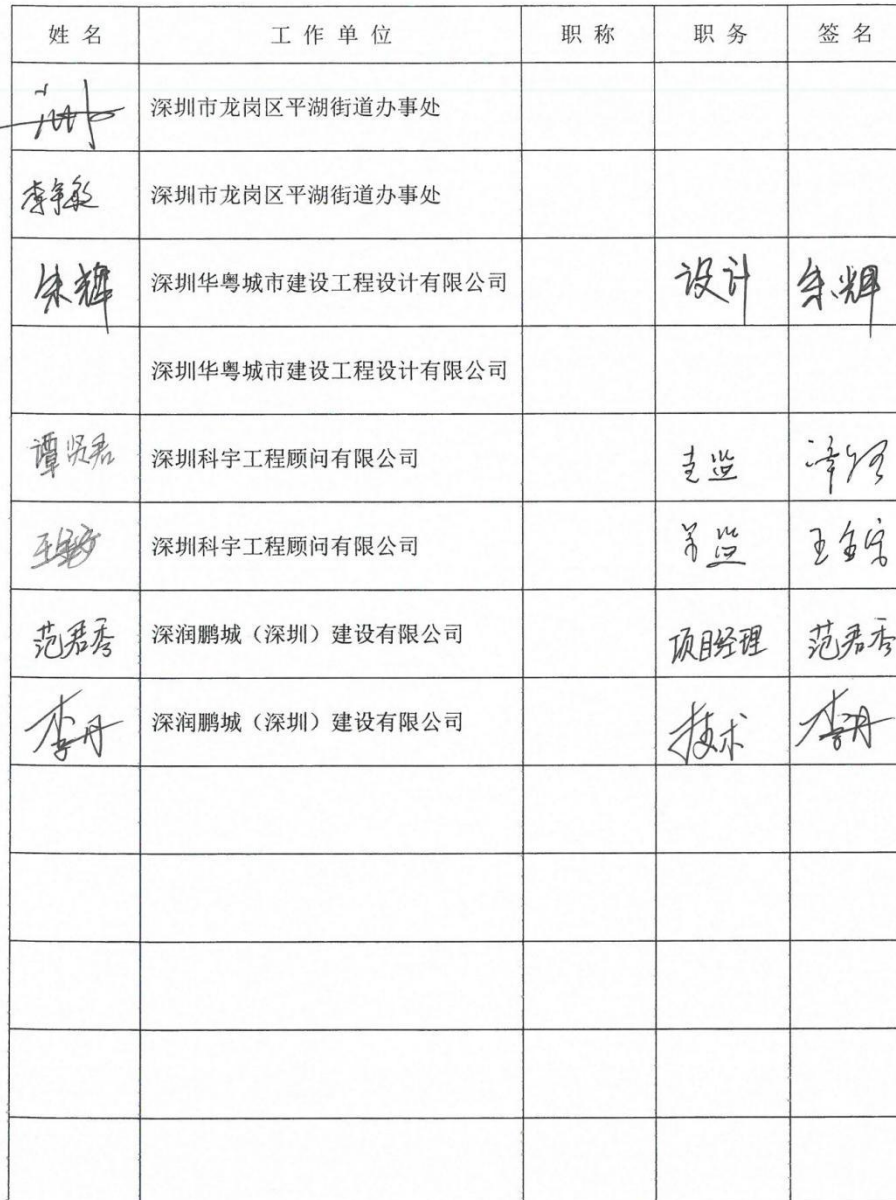 姓名 工作单位 职称 职务 签名
深圳市龙岗区平湖街道办事处
深圳市龙岗区平湖街道办事处
朱辉 深圳华粤城市建设工程设计有限公司 设计 朱辉
深圳华粤城市建设工程设计有限公司
谭贤君 深圳科宇工程顾问有限公司 总监
深圳科宇工程顾问有限公司
范君秀 深润鹏城（深圳）建设有限公司 项目经理 范君秀
李丹 深润鹏城（深圳）建设有限公司 技术 李丹